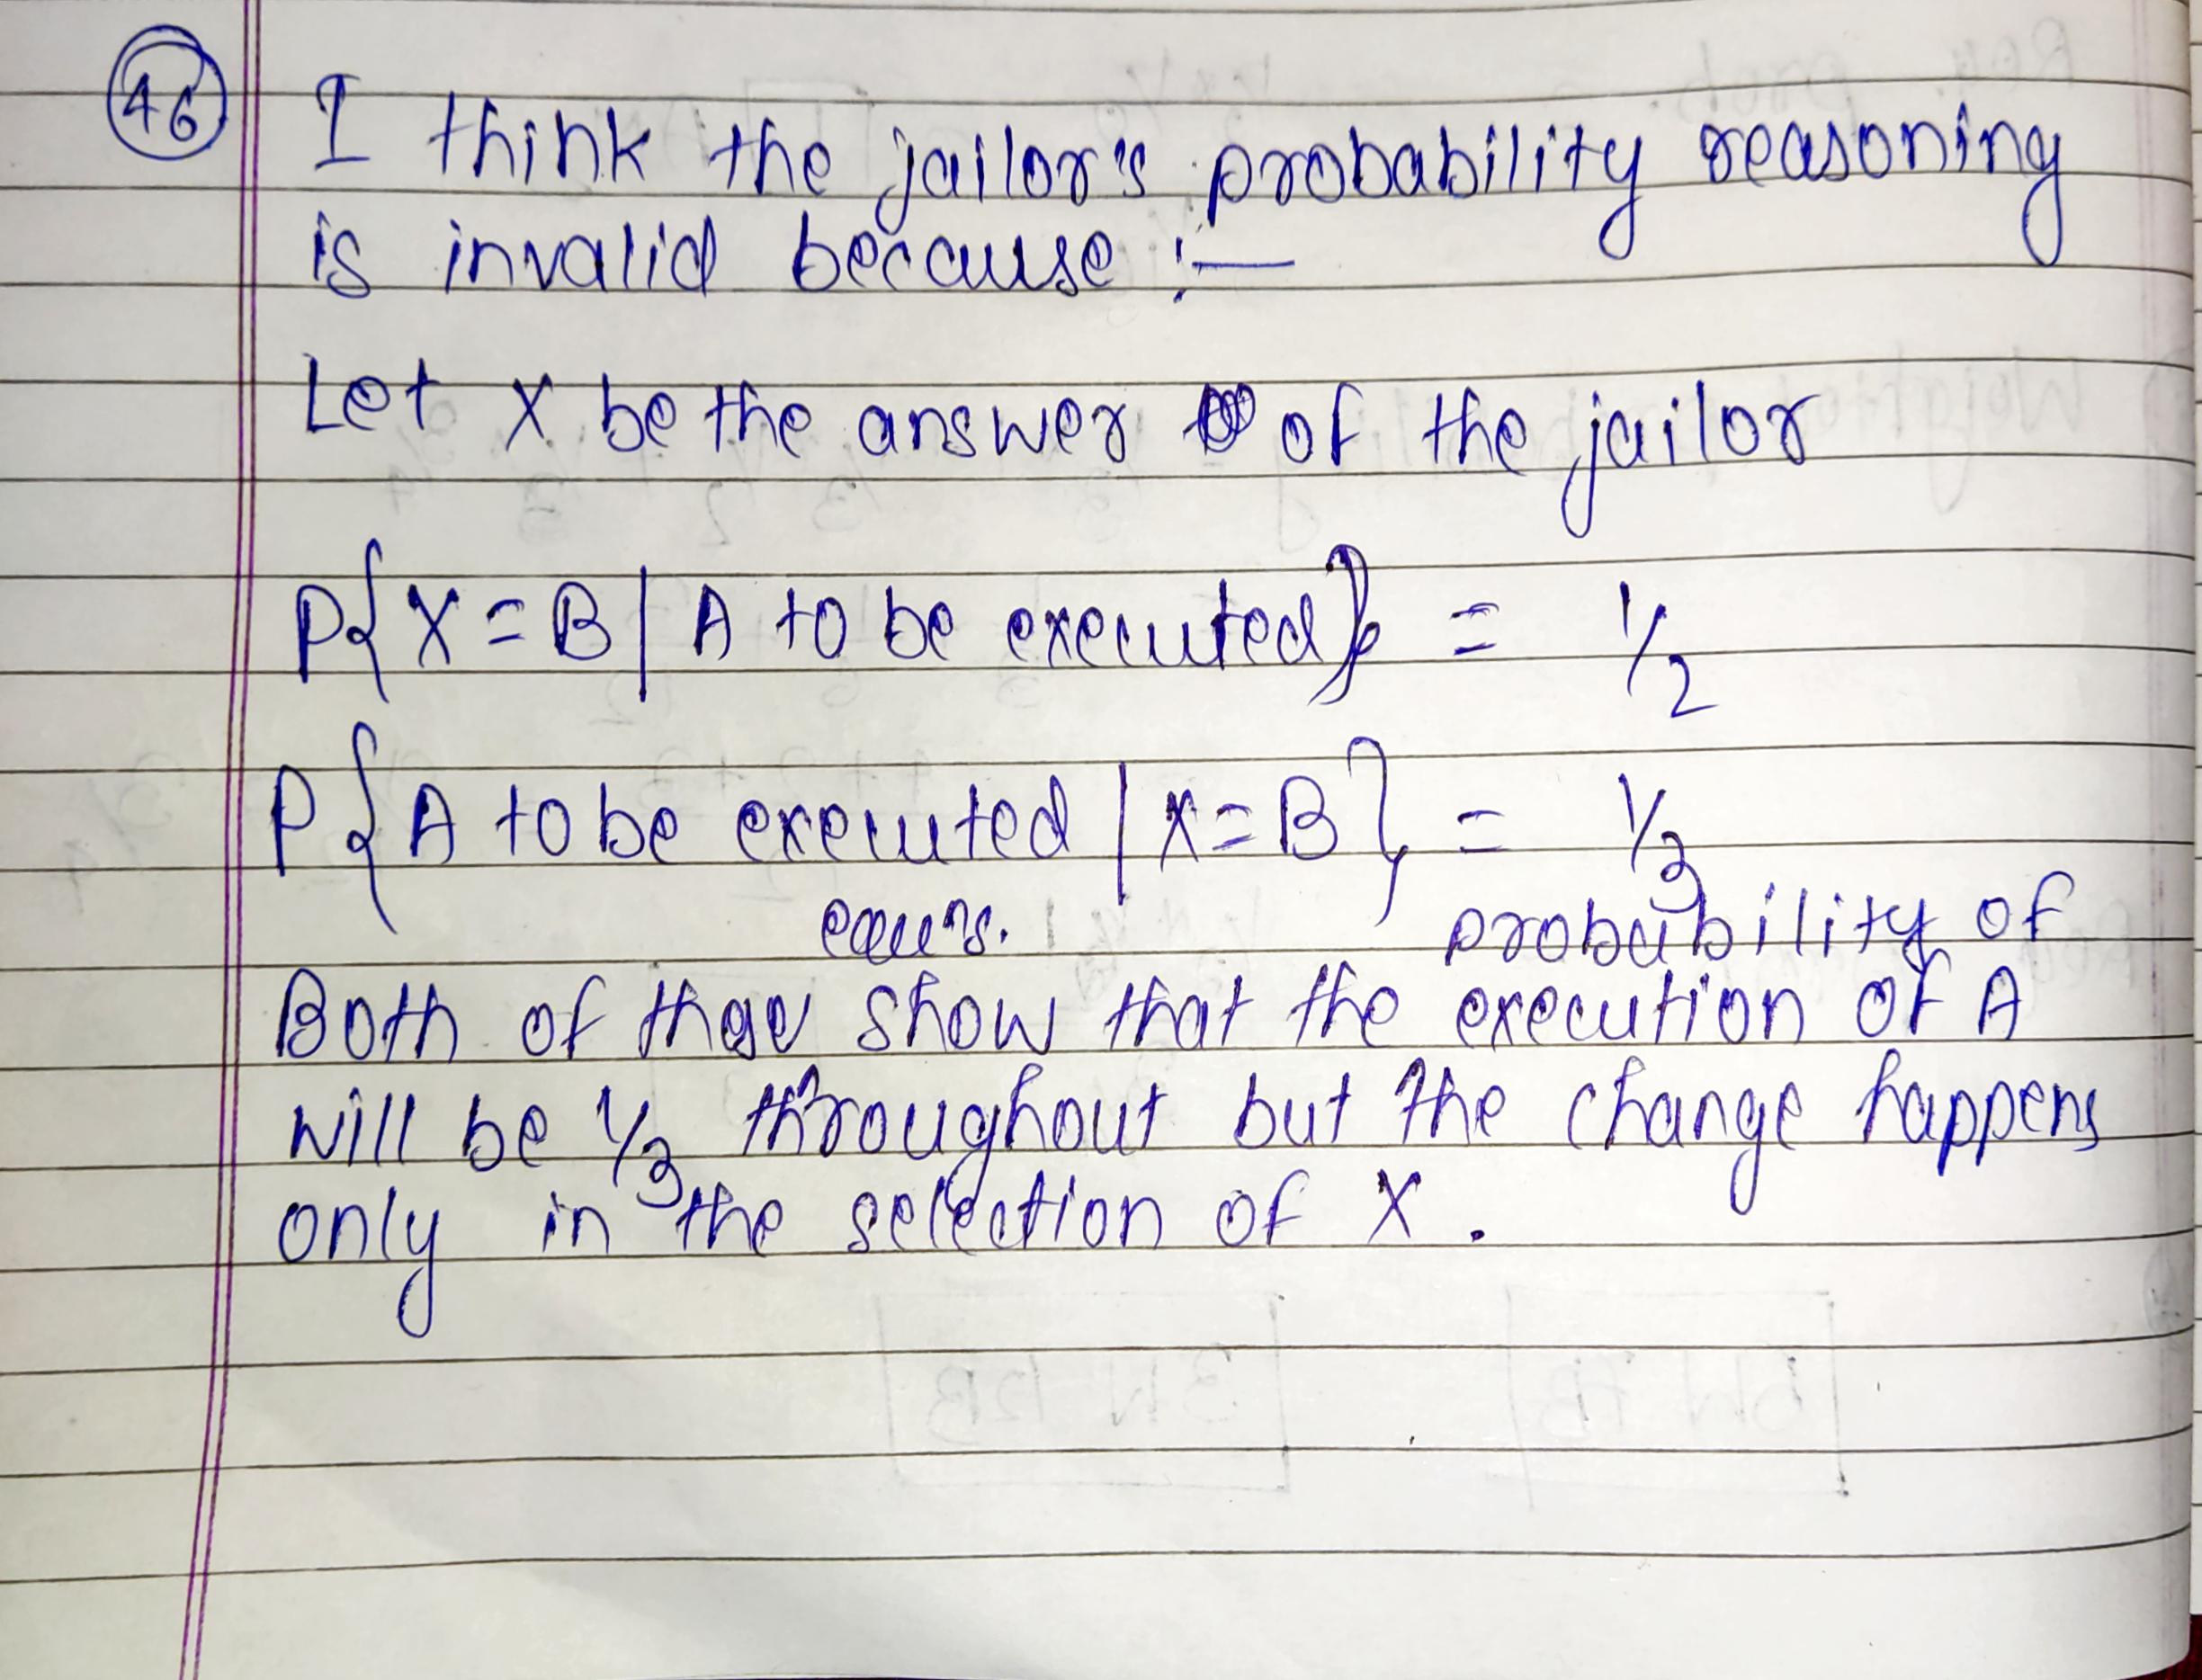 46
I think the jailor's probability reasoning
is invalid because :—
Let X be the answer of the jailor
P{X = B | A to be executed} = 1/2
P{A to be executed | X = B} = 1/3
eqns. probability of
Both of these show that the execution of A
will be 1/3 throughout but the change happens
only in the selection of X.